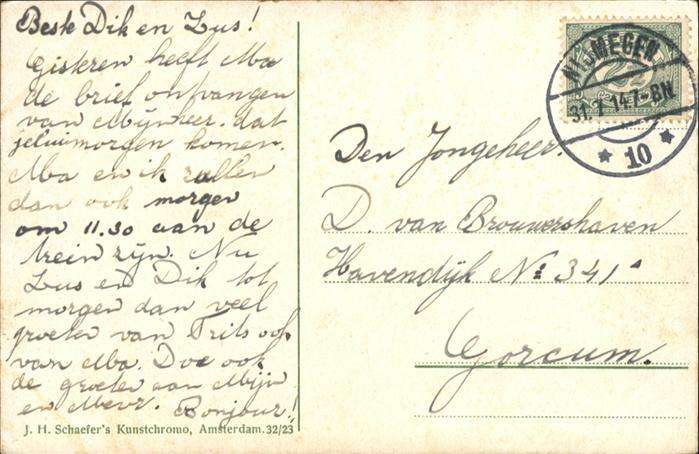 Beste Dik en Lus!
Gisteren heeft Ma
de brief ontvangen
van Mijnheer. dat
jelui morgen komen.
Ma en ik zullen
dan ook morgen
om 11.30 aan de
trein zijn. Nu
Lus en Dik tot
morgen dan veel
groeten van Frits ook
van Ma. Doe ook
de groeten aan Mijn
en Mevr. Bonjour!
J. H. Schaefer's Kunstchromo, Amsterdam. 32/23
NIJMEGEN
31.7.14 7-8N
★ 10 ★
Den Jongeheer.
D. van Brouwershaven
Havendijk No 341a
Gorcum.